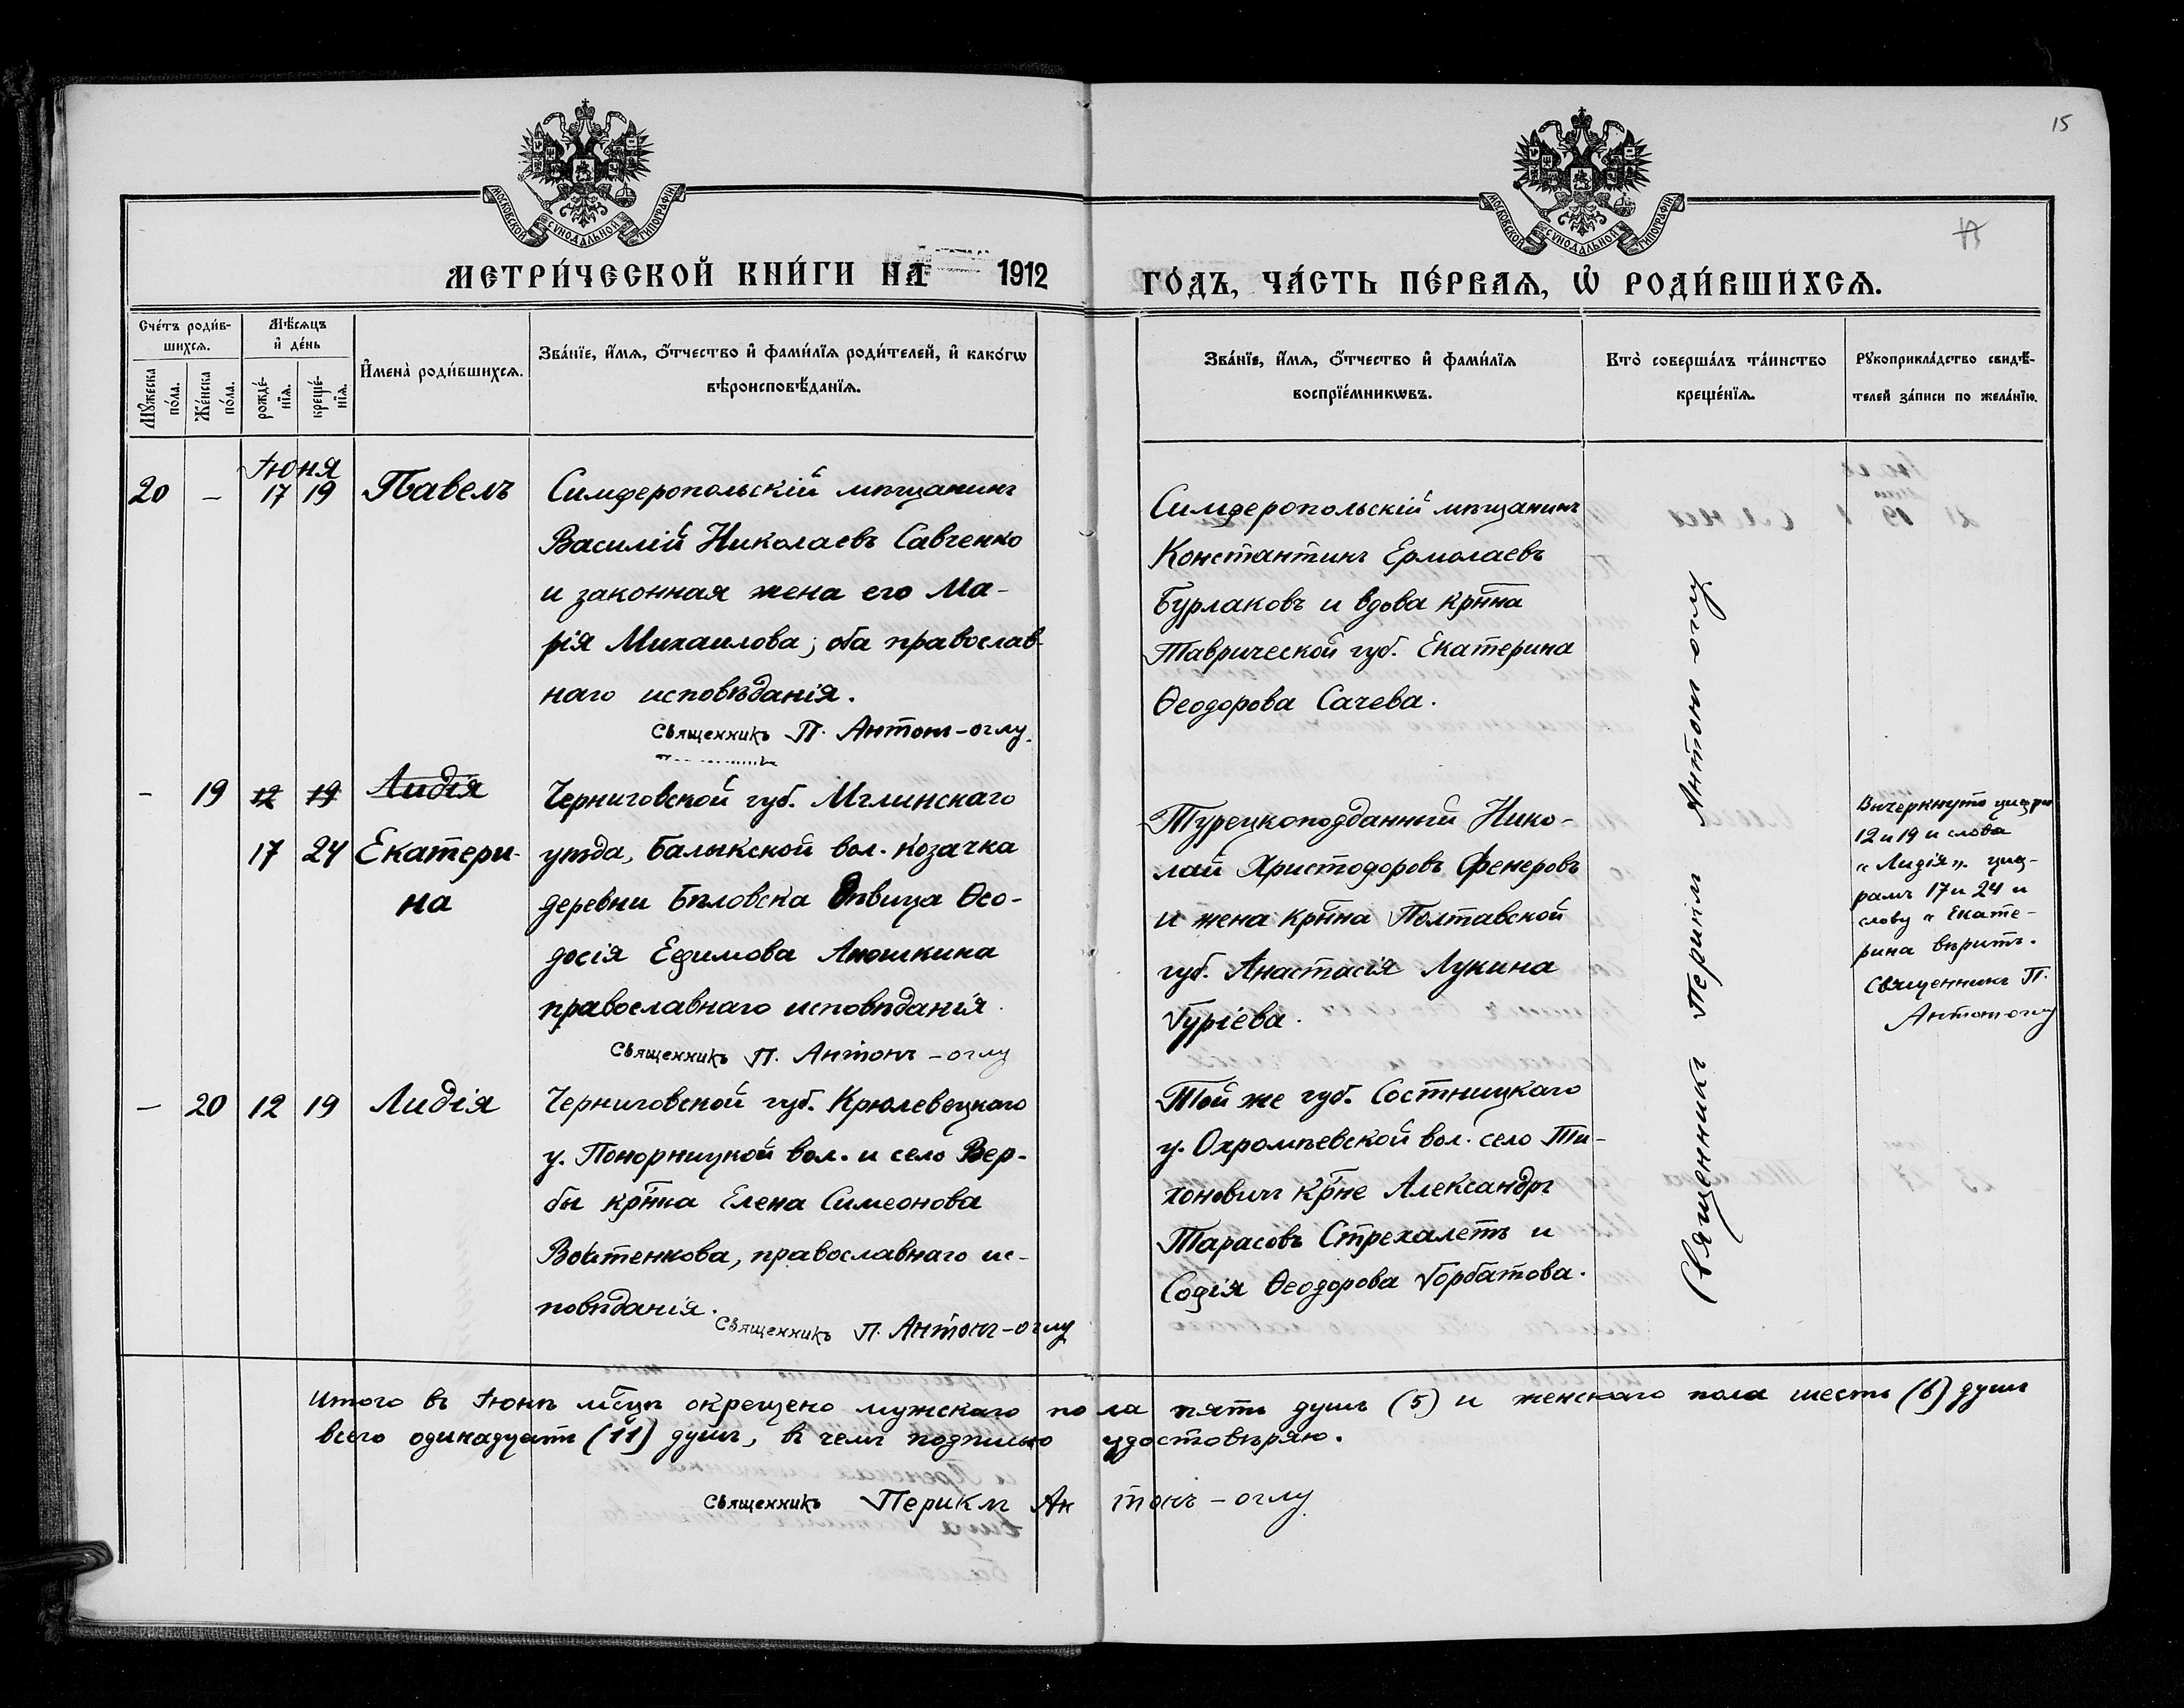 15
МОСКОВСКОЙ СѴНОДАЛЬНОЙ ТИПОГРАФІИ
МОСКОВСКОЙ СѴНОДАЛЬНОЙ ТИПОГРАФІИ
МЕТРИ́ЧЕСКОЙ КНИ́ГИ НА 1912
ГО́ДЪ, ЧА́СТЬ ПЕ́РВАѦ, Ѡ҆ РОДИ́ВШИХСѦ.
Сче́тъ роди́в-
шихсѧ.
Мꙋ́жеска
по́ла.
Же́нска
по́ла.
Мѣ́сѧцъ
и҆ де́нь
рожде́-
нїѧ.
креще́-
нїѧ.
И҆мена̀ роди́вшихсѧ.
Зва́нїе, и҆́мѧ, ѻ҆́тчество и҆ фами́лїѧ роди́телей, и҆ како́гѡ
вѣроисповѣ́данїѧ.
Зва́нїе, и҆́мѧ, ѻ҆́тчество и҆ фами́лїѧ
воспрїе́мникѡвъ.
Кто̀ соверша́лъ та́инство
креще́нїѧ.
Рꙋкоприкла́дство свидѣ́-
телей за́писи по жела́нїю.
Іюня
20 — 17 19 Павелъ
Симферопольскій мѣщанинъ
Василій Николаевъ Савченко
и законная жена его Ма-
рія Михаилова; оба православ-
наго исповѣданія.
Священникъ П. Антонъ-оглу.
Симферопольскій мѣщанинъ
Константинъ Ермолаевъ
Бурлаковъ и вдова кр҃нна
Таврической губ. Екатерина
Ѳеодорова Сачева.
- 19 12 19 Лидія
17 24 Екатери-
на
Черниговской губ. Мглинскаго
уѣзда, Балыкской вол. козачка
деревни Бѣловска дѣвица Ѳео-
досія Ефимова Анюшкина
православнаго исповѣданія.
Священникъ П. Антонъ-оглу
Турецкоподданный Нико-
лай Христодоровъ Фенеровъ
и жена кр҃нна Полтавской
губ. Анастасія Лукина
Гуріева.
Вычеркнуто цифры
12 и 19 и слова
"Лидія". циф-
рамъ 17 и 24 и
слову "Екате-
рина вѣрить.
Священникъ П.
Антонъ оглу
— 20 12 19 Лидія
Черниговской губ. Кролевецкаго
у. Понорницкой вол. и село Вер-
бы кр҃нка Елена Симеонова
Войтенкова, православнаго ис-
повѣданія.
Священникъ П. Антонъ-оглу
Той же губ. Состницкаго
у. Охромѣевской вол. село Ти-
хоновичъ кр҃не Александръ
Тарасовъ Стрехалетъ и
Софія Ѳеодорова Горбатова.
Священникъ Периклъ Антонъ оглу
Итого въ Іюнѣ мѣ҃сцѣ окрещено мужскаго пола пять душъ (5) и женскаго пола шесть (6) душъ
всего одинадцать (11) душъ, въ чемъ подписью удостовѣряю.
Священникъ Периклъ Антонъ-оглу